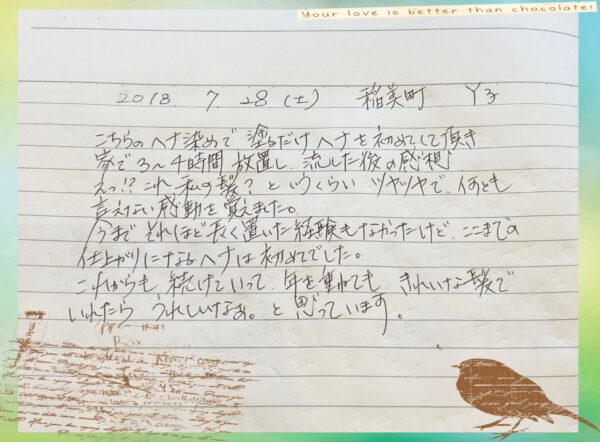 Your love is better than chocolate!
2018. 7 28 (土) 稲美町 Y子
こちらのヘナ染めで 塗るだけヘナを初めてして頂き
家で3〜4時間 放置し、流した後の感想
えっ!?これ 私の髪? というくらい ツヤツヤで、何とも
言えない感動を覚えました。
今まで それほど長く置いた経験もなかったけど、ここまでの
仕上がりになるヘナは初めてでした。
これからも 続けていって、年を重ねても きれいな髪で
いれたら うれしいなぁ。と思っています。